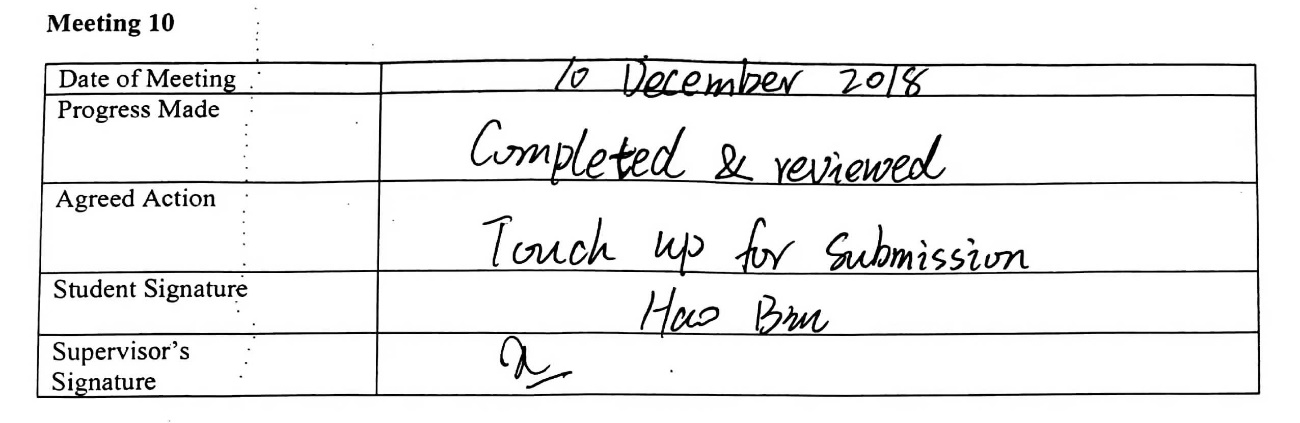 Meeting 10
Date of Meeting 10 December 2018
Progress Made
Completed & reviewed
Agreed Action
Touch up for submission
Student Signature
Hao
Supervisor's
Signature